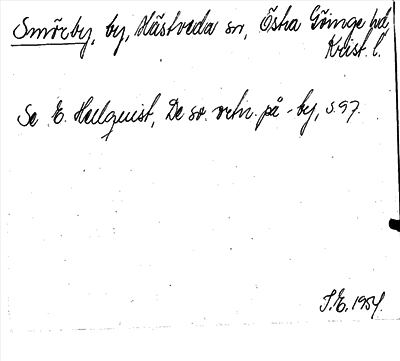 Smörby, by, Hästveda sn, Östra Göinge hd,
Krist. l.
Se E. Hellquist, De sv. ortn. på -by, s. 97.
J.E. 1954.